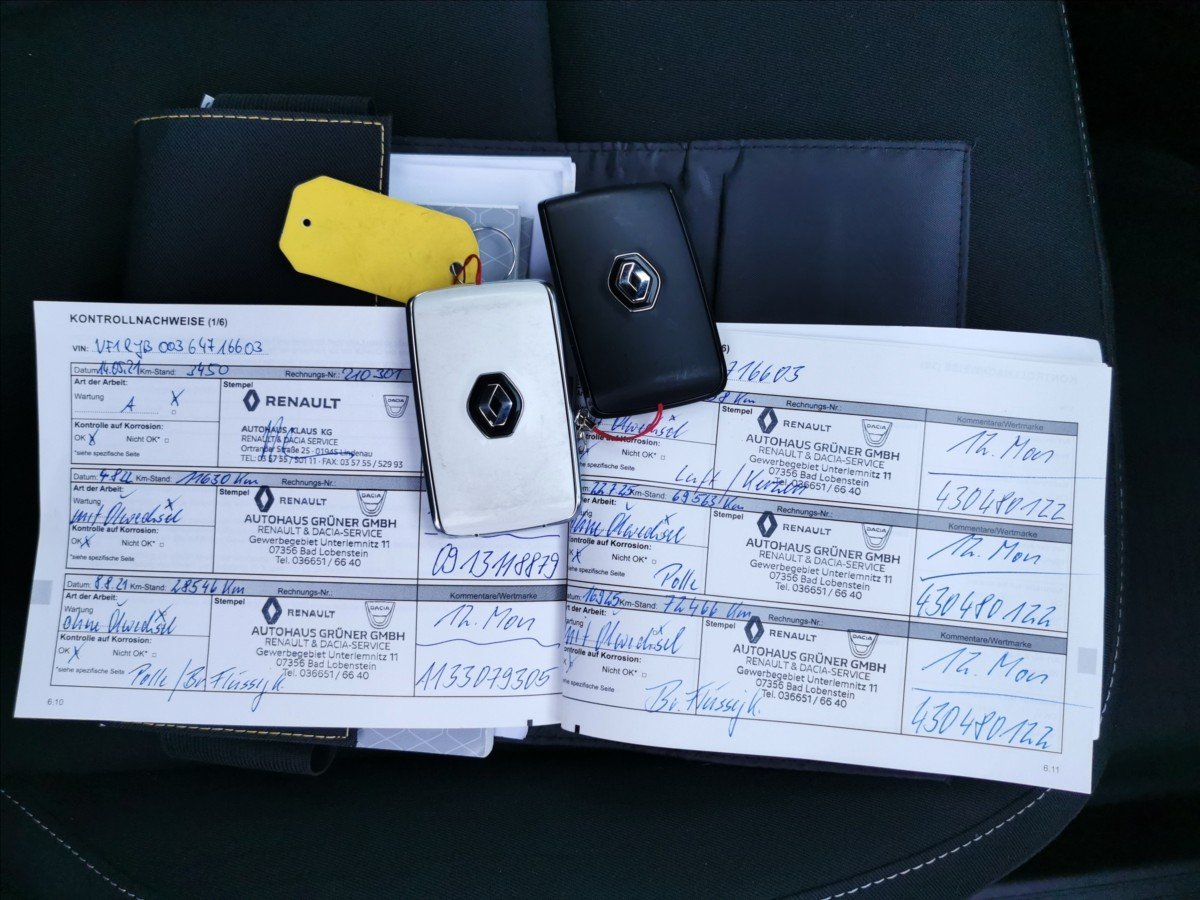 KONTROLLNACHWEISE (1/6)
VIN: VF1RJB 003 64716603
Datum: 14.05.21 Km-Stand: 3450 Rechnungs-Nr.: 210301
Art der Arbeit:
Wartung X
A
Kontrolle auf Korrosion:
OK X Nicht OK*
*siehe spezifische Seite
Stempel
RENAULT DACIA
AUTOHAUS KLAUS KG
RENAULT & DACIA SERVICE
Ortrander Straße 25 - 01945 Lindenau
TEL.: 03 57 55 / 50 11 - FAX: 03 57 55 / 529 93
Datum: Km-Stand: 11630 Km Rechnungs-Nr.:
Art der Arbeit:
Wartung X
mit Ölwechsel
Kontrolle auf Korrosion:
OK X Nicht OK*
*siehe spezifische Seite
Stempel
RENAULT DACIA
AUTOHAUS GRÜNER GMBH
RENAULT & DACIA-SERVICE
Gewerbegebiet Unterlemnitz 11
07356 Bad Lobenstein
Tel. 036651 / 66 40
0913118879
Datum: Km-Stand: 28546 Km Rechnungs-Nr.:
Art der Arbeit:
Wartung X
ohne Ölwechsel
Kontrolle auf Korrosion:
OK X Nicht OK*
*siehe spezifische Seite
Polle / Br. Flüssigk.
Stempel
RENAULT DACIA
AUTOHAUS GRÜNER GMBH
RENAULT & DACIA-SERVICE
Gewerbegebiet Unterlemnitz 11
07356 Bad Lobenstein
Tel. 036651 / 66 40
Kommentare/Wertmarke
12. Mon
1133079305
6.10
6)
716603
Km Rechnungs-Nr.:
mit Ölwechsel
Kontrolle auf Korrosion:
Nicht OK*
*siehe spezifische Seite
Luft / Kerzen
Stempel
RENAULT DACIA
AUTOHAUS GRÜNER GMBH
RENAULT & DACIA-SERVICE
Gewerbegebiet Unterlemnitz 11
07356 Bad Lobenstein
Tel. 036651 / 66 40
Kommentare/Wertmarke
12. Mon
430480122
Km-Stand: 69563 Km Rechnungs-Nr.:
Art der Arbeit:
ohne Ölwechsel
Kontrolle auf Korrosion:
X Nicht OK*
*siehe spezifische Seite
Polle
Stempel
RENAULT DACIA
AUTOHAUS GRÜNER GMBH
RENAULT & DACIA-SERVICE
Gewerbegebiet Unterlemnitz 11
07356 Bad Lobenstein
Tel. 036651 / 66 40
Kommentare/Wertmarke
12. Mon
430480122
Km-Stand: 72466 Km Rechnungs-Nr.:
Art der Arbeit:
mit Ölwechsel
Kontrolle auf Korrosion:
Nicht OK*
*siehe spezifische Seite
Br. Flüssigk.
Stempel
RENAULT DACIA
AUTOHAUS GRÜNER GMBH
RENAULT & DACIA-SERVICE
Gewerbegebiet Unterlemnitz 11
07356 Bad Lobenstein
Tel. 036651 / 66 40
Kommentare/Wertmarke
12. Mon
430480122
6.11